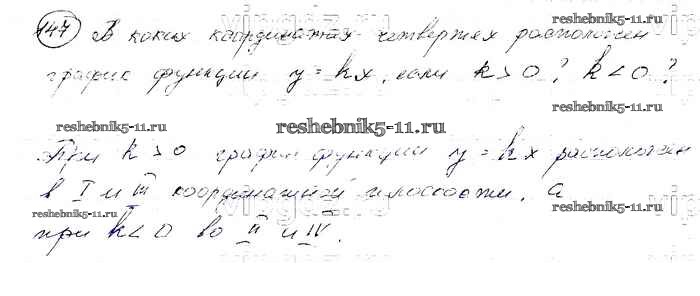 147 В каких координатных четвертях расположен
reshebnik5-11.ru
график функции y = kx, если k > 0? k < 0?
reshebnik5-11.ru
reshebnik5-11.ru
reshebnik5-11.ru
При k > 0 график функции y = kx расположен
в I и III координатной плоскости, а
reshebnik5-11.ru
reshebnik5-11.ru
при k < 0 во II и IV.